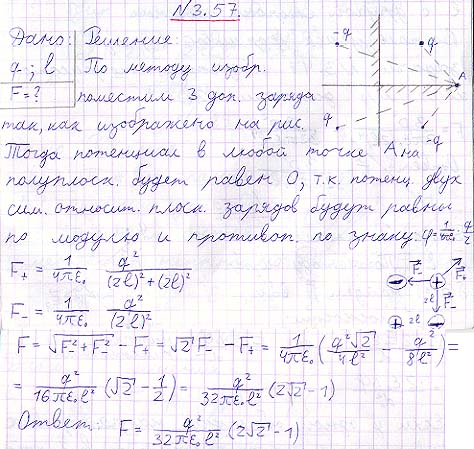 №3.57.
Дано: Решение:
q ; l По методу изобр.
F=? поместим 3 доп. заряда
так, как изображено на рис.
Тогда потенциал в любой точке A на
полуплоск. будет равен 0, т.к. потенц. двух
сим. относит. плоск. зарядов будут равны
по модулю и противоп. по знаку. φ=1/4πε₀·q/r
-q q
A
q -q
F₊ = 1/4πε₀ q²/((2l)²+(2l)²)
F₋ = 1/4πε₀ q²/(2l)²
F₋ F₊
2l
2l
F = √(F₋²+F₋²) - F₊ = √2 F₋ - F₊ = 1/4πε₀ (q²√2/4l² - q²/8l²) =
= q²/16πε₀l² (√2 - 1/2) = q²/32πε₀l² (2√2 - 1)
Ответ: F = q²/32πε₀l² (2√2 - 1)